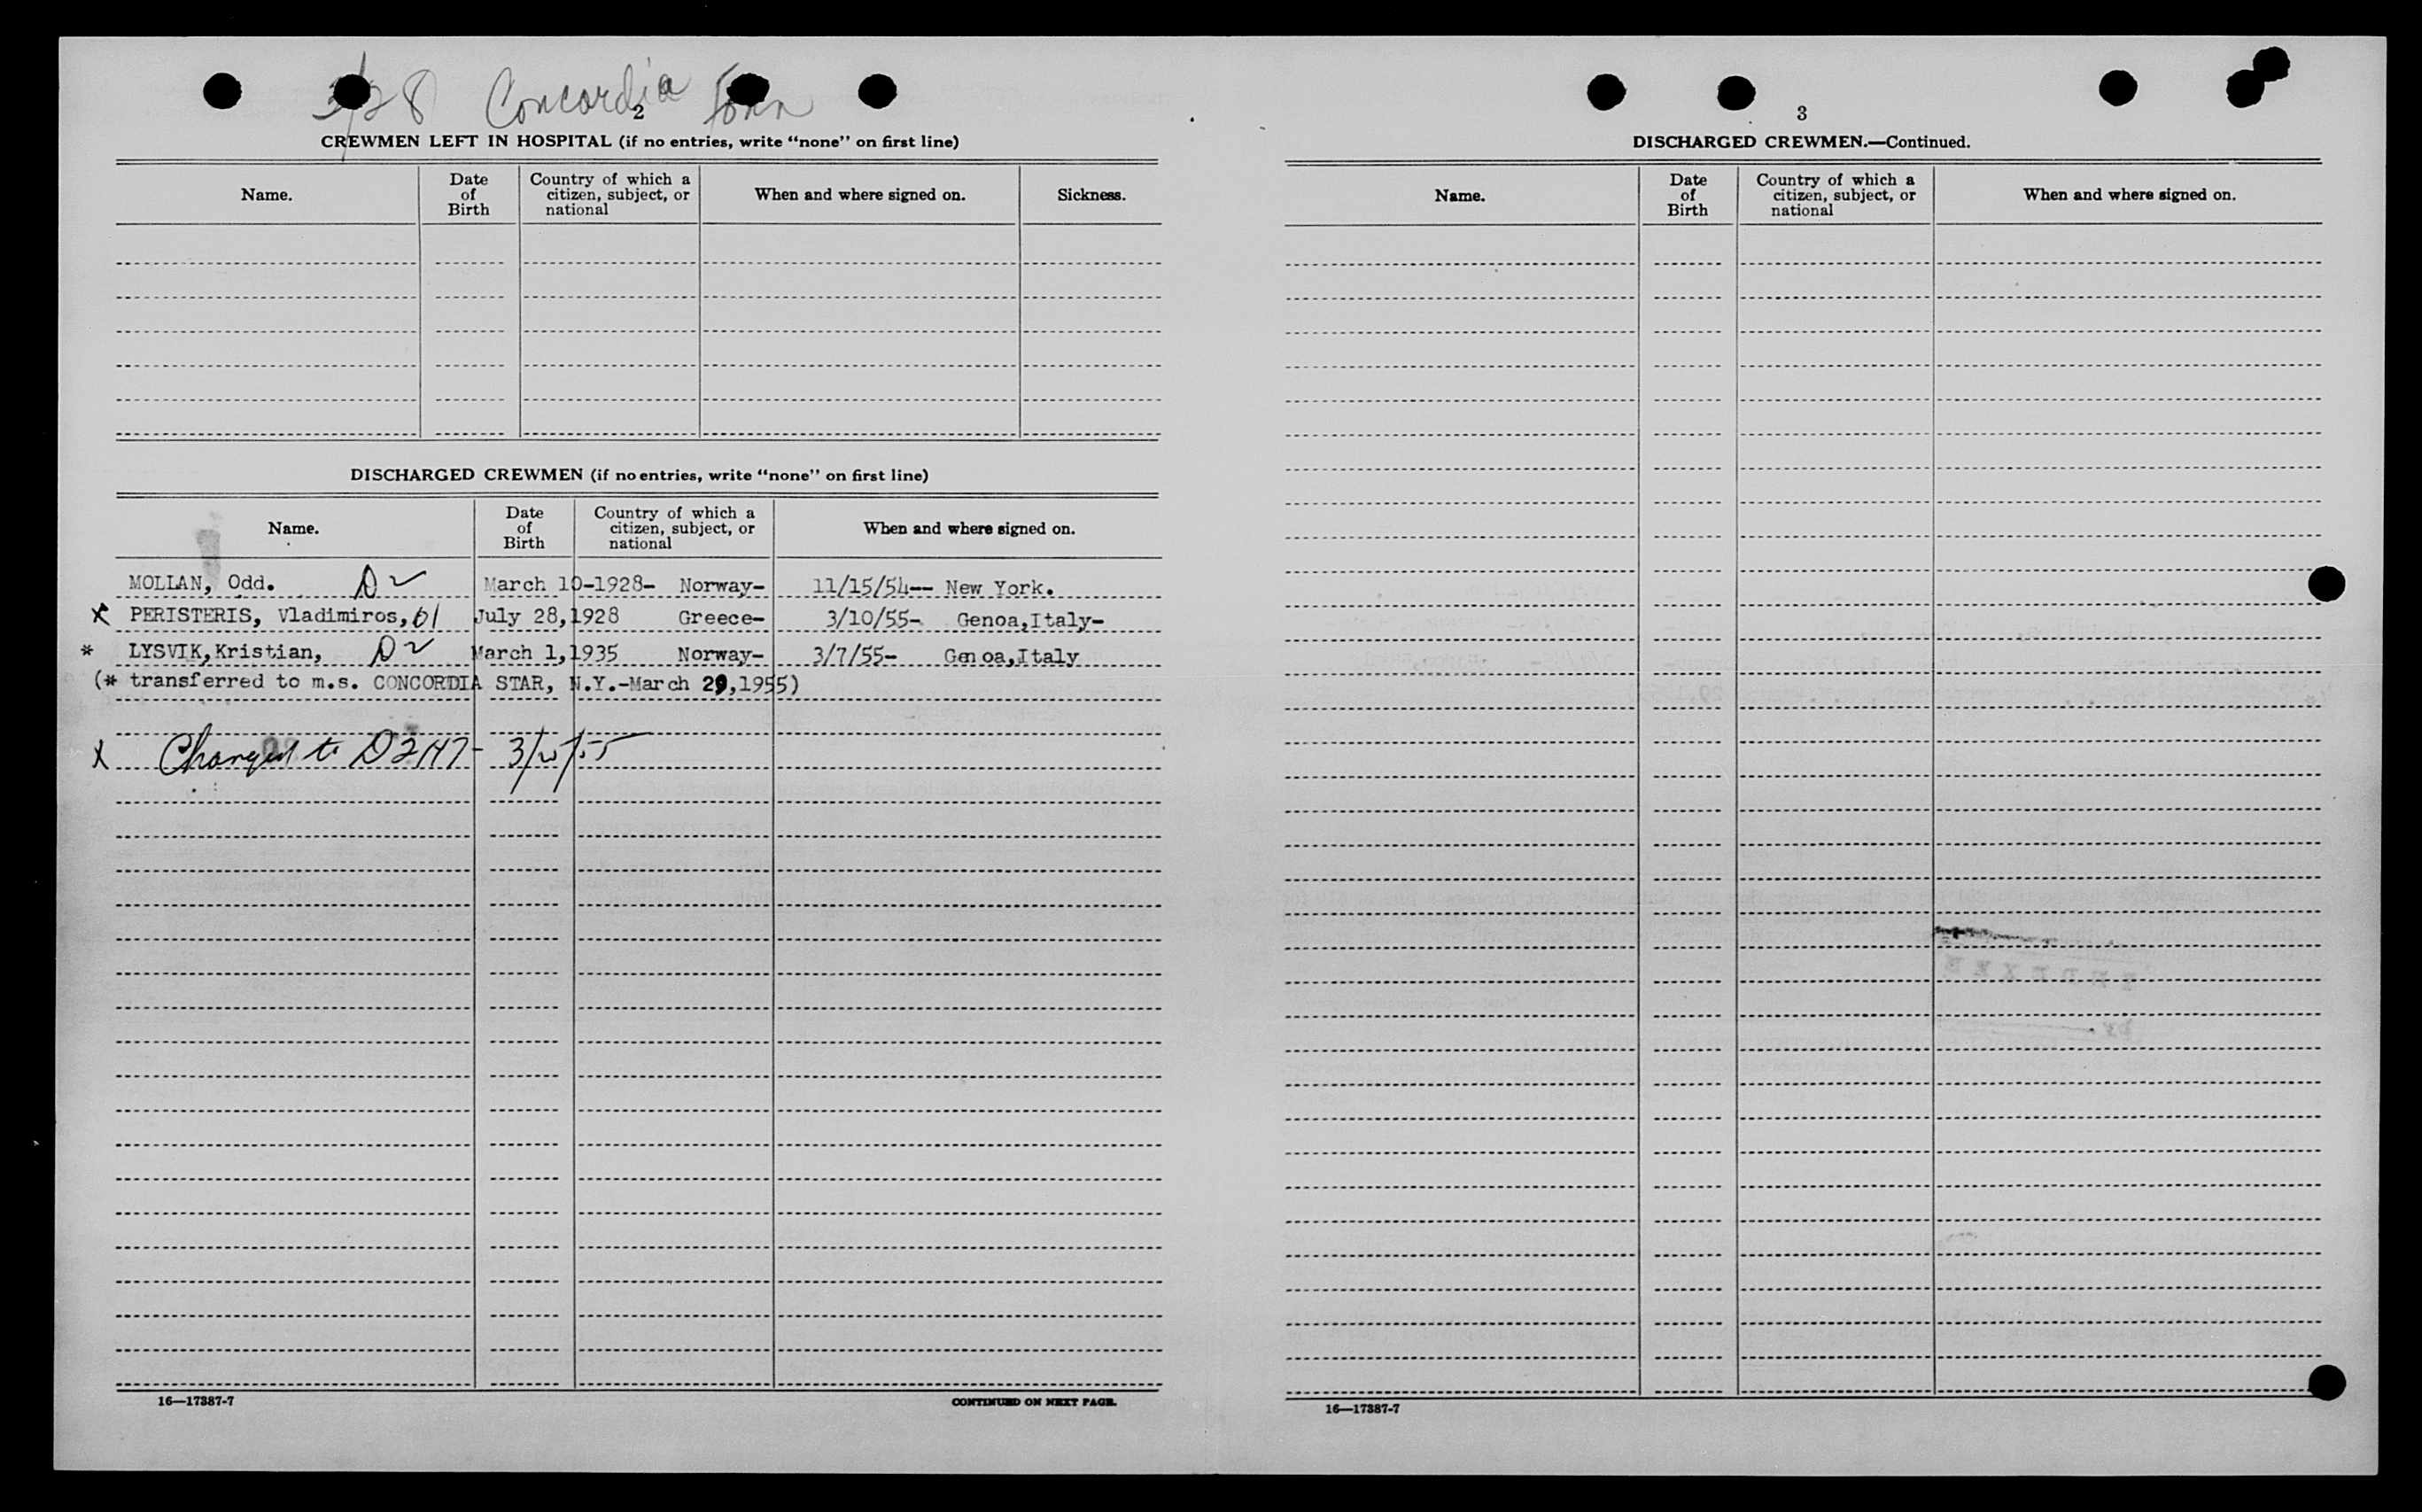 3/28 Concordia Fonn
2
CREWMEN LEFT IN HOSPITAL (if no entries, write "none" on first line)
Name. Date of Birth Country of which a citizen, subject, or national When and where signed on. Sickness.
DISCHARGED CREWMEN (if no entries, write "none" on first line)
Name. Date of Birth Country of which a citizen, subject, or national When and where signed on.
MOLLAN, Odd. D2 March 10-1928- Norway- 11/15/54-- New York.
X PERISTERIS, Vladimiros, D1 July 28,1928 Greece- 3/10/55- Genoa,Italy-
* LYSVIK,Kristian, D2 March 1,1935 Norway- 3/7/55- Genoa,Italy
(* transferred to m.s. CONCORDIA STAR, N.Y.-March 29,1955)
X Changed to D2
16—17387-7 CONTINUED ON NEXT PAGE.
3
DISCHARGED CREWMEN.—Continued.
Name. Date of Birth Country of which a citizen, subject, or national When and where signed on.
16—17387-7